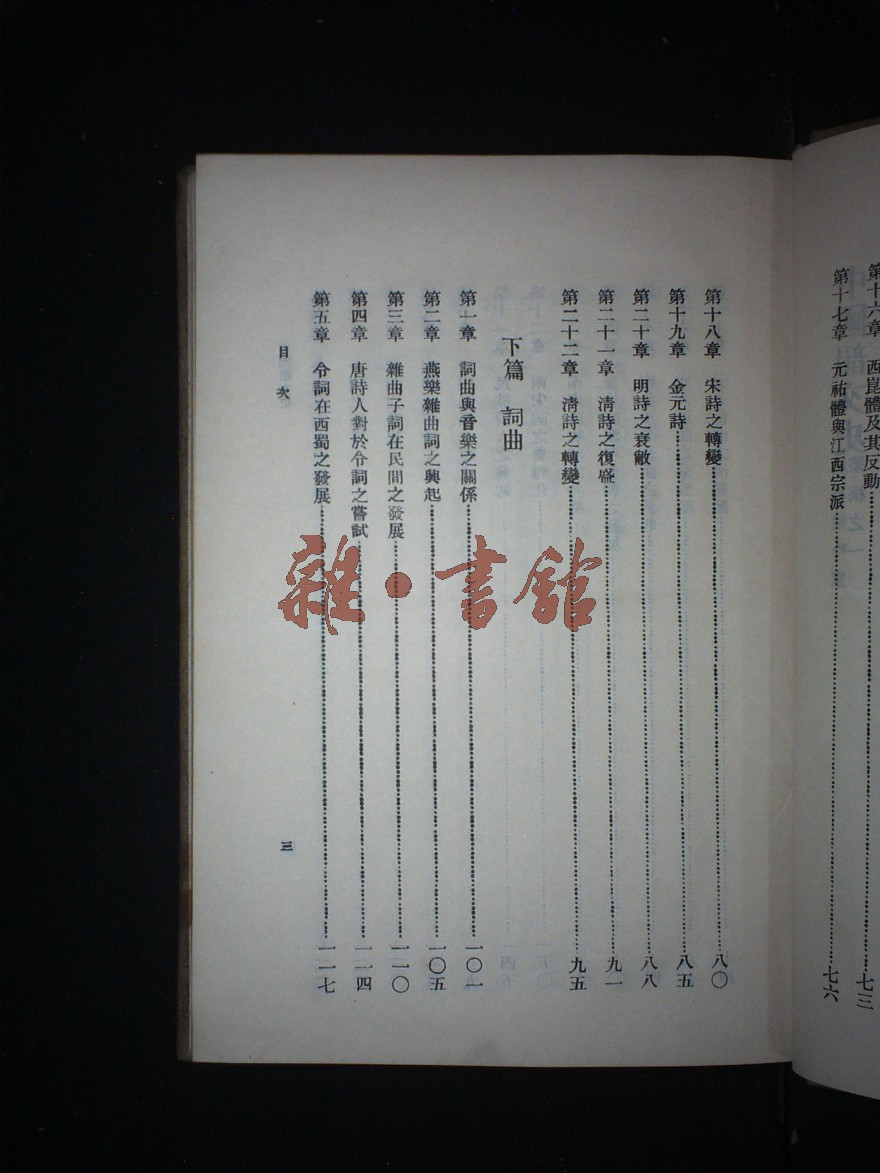 第十六章　西崑體及其反動……七三
第十七章　元祐體與江西宗派……七六
第十八章　宋詩之轉變……八〇
第十九章　金元詩……八五
第二十章　明詩之衰敝……八八
第二十一章　淸詩之復盛……九一
第二十二章　淸詩之轉變……九五
下篇　詞曲
第一章　詞曲與音樂之關係……一〇一
第二章　燕樂雜曲詞之興起……一〇五
第三章　雜曲子詞在民間之發展……一一〇
第四章　唐詩人對於令詞之嘗試……一一四
第五章　令詞在西蜀之發展……一一七
目次　三
雜·書館